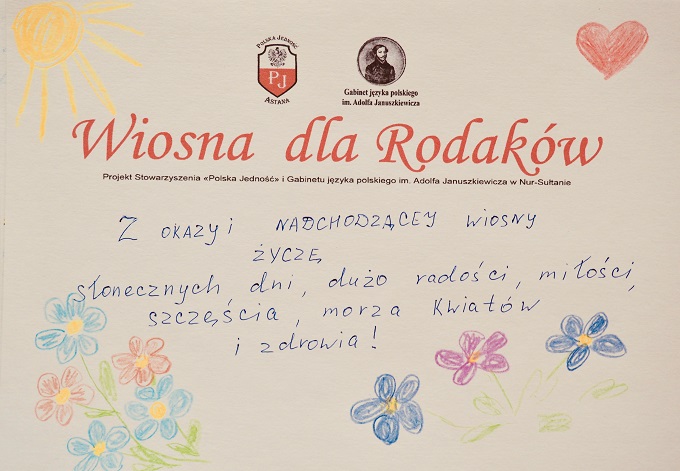 POLSKA JEDNOŚĆ
PJ
ASTANA
Gabinet języka polskiego
im. Adolfa Januszkiewicza
Wiosna dla Rodaków
Projekt Stowarzyszenia «Polska Jedność» i Gabinetu języka polskiego im. Adolfa Januszkiewicza w Nur-Sułtanie
Z OKAZYI NADCHODZĄCEY WIOSNY
ŻYCZĘ
słonecznych dni, dużo radości, miłości,
szczęścia, morza kwiatów
i zdrowia!